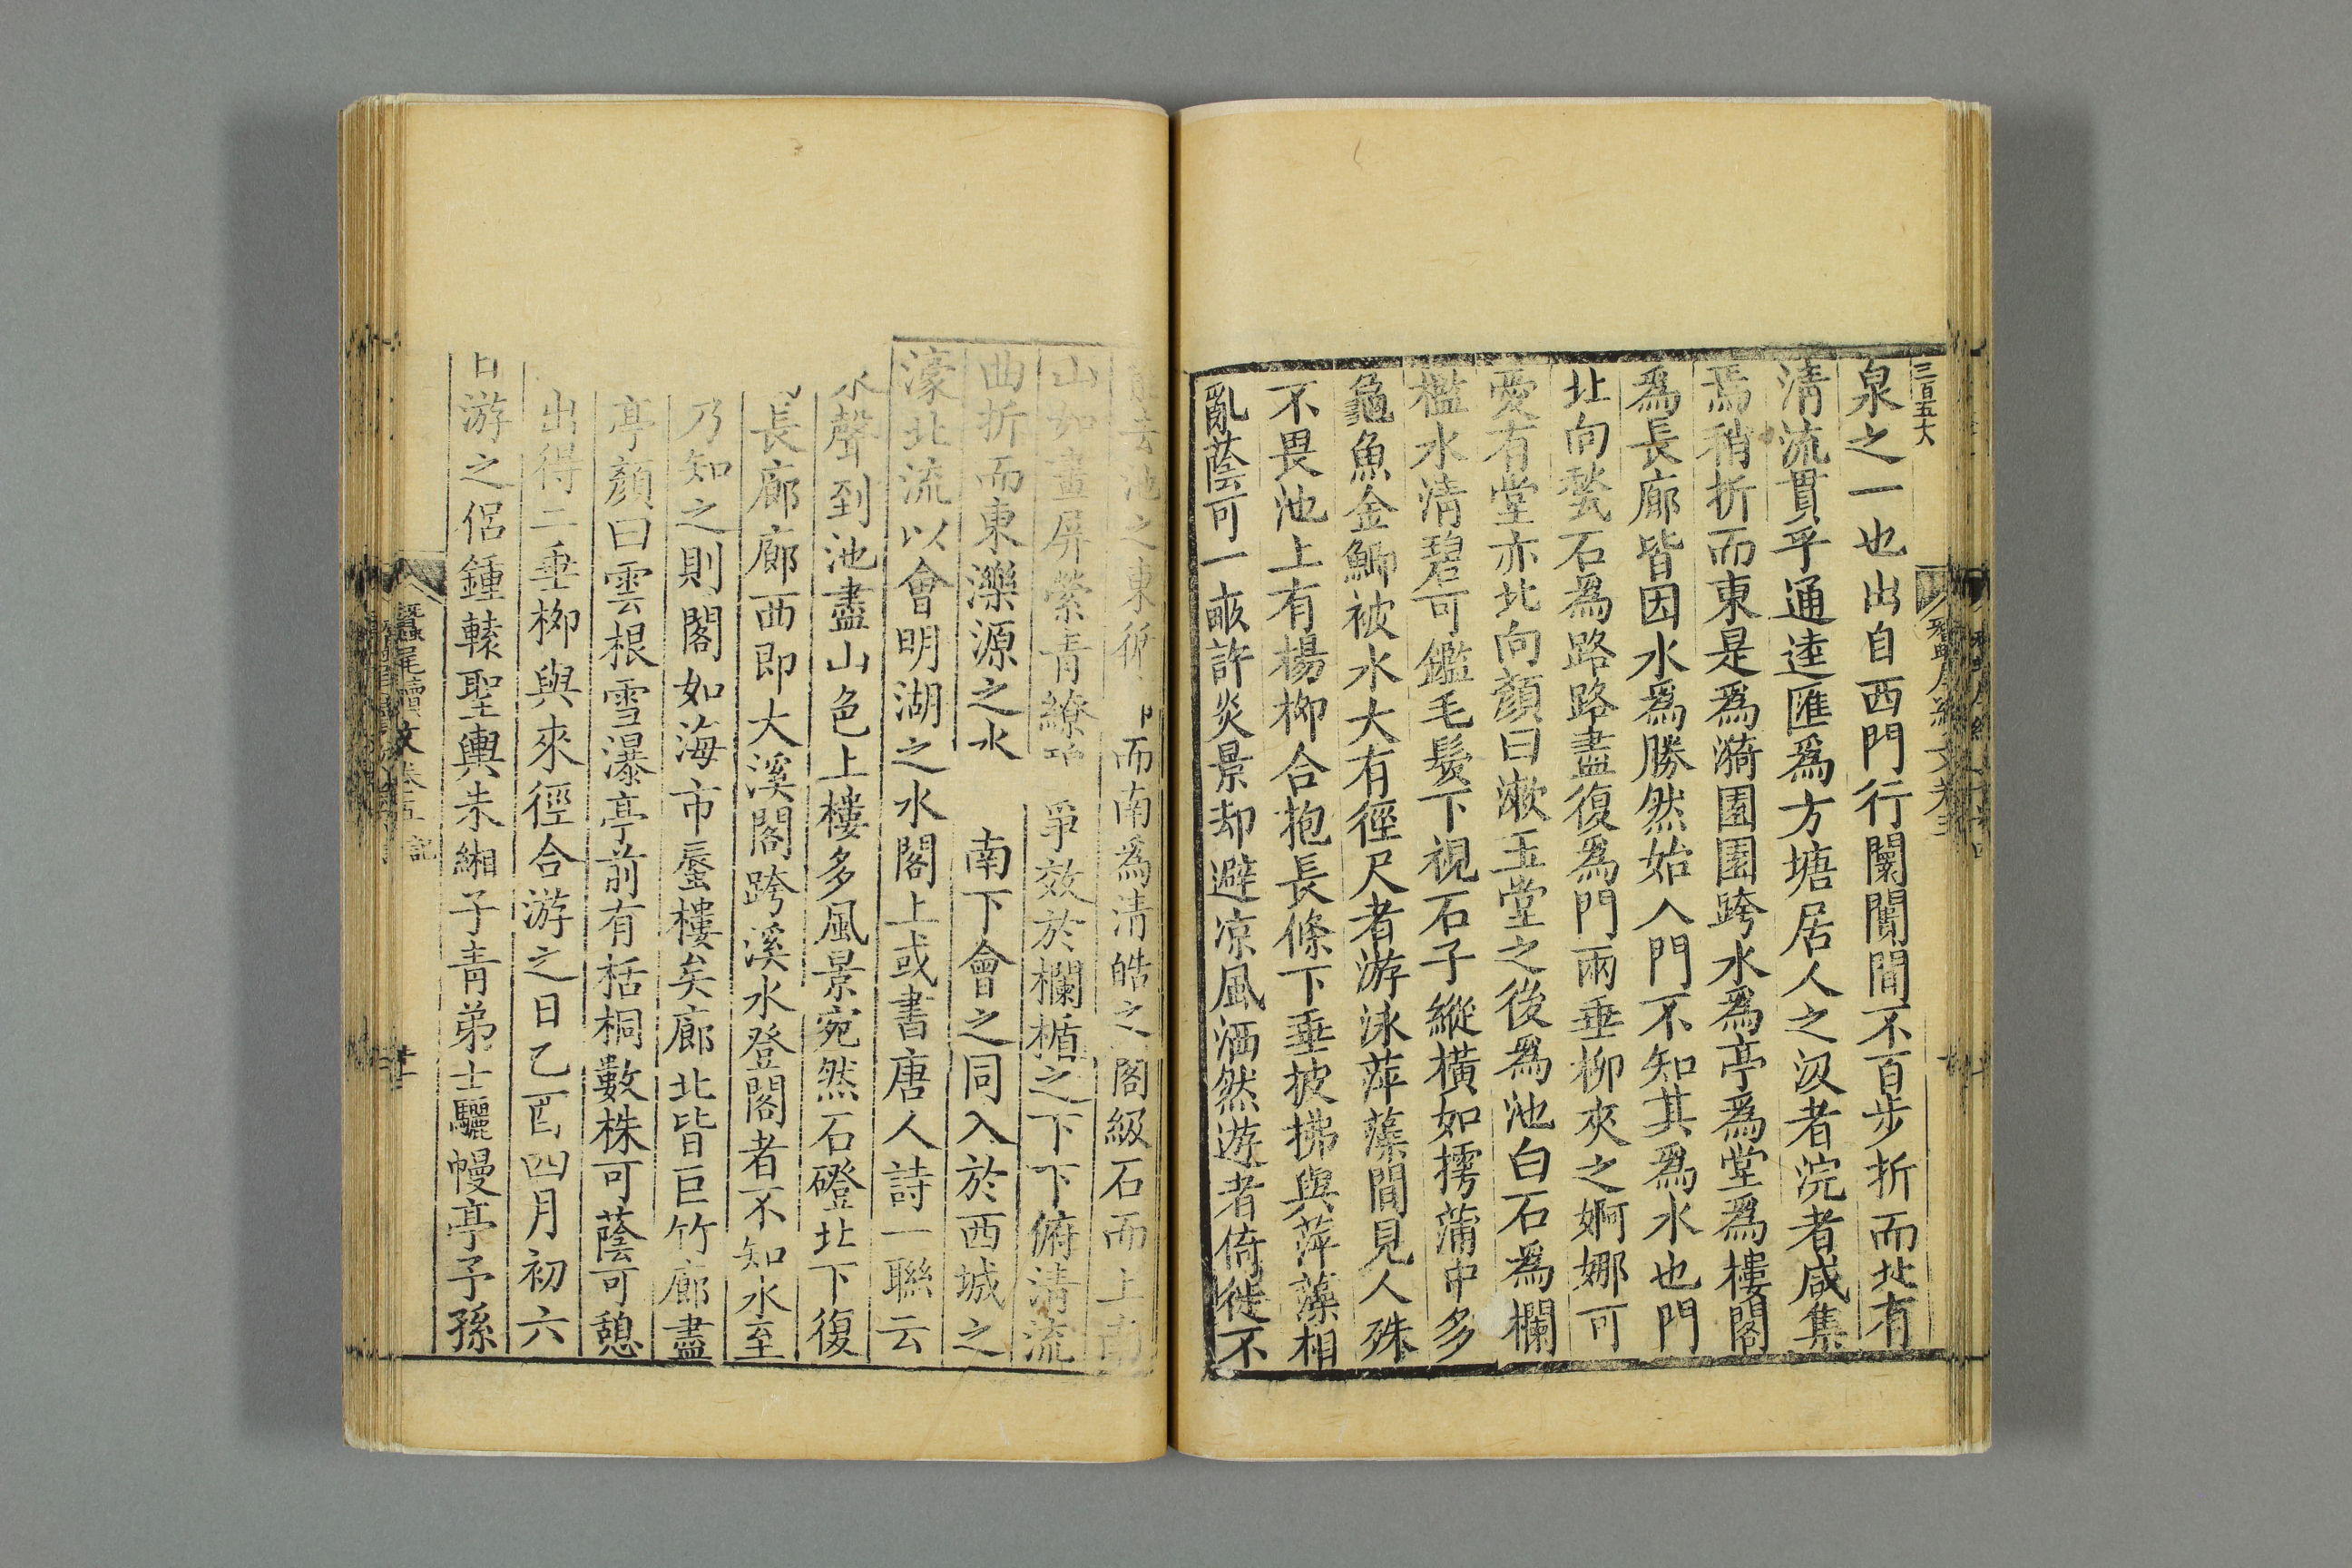 三百五大
泉之一也出自西門行闤闠間不百步折而北有
清流貫乎通逵匯爲方塘居人之汲者浣者咸集
焉稍折而東是爲漪園園跨水爲亭爲堂爲樓閣
爲長廊皆因水爲勝然始入門不知其爲水也門
北向甃石爲路路盡復爲門兩垂柳夾之婀娜可
愛有堂亦北向顏曰漱玉堂之後爲池白石爲欄
檻水清碧可鑑毛髮下視石子縱橫如摴蒲中多
龜魚金鯽被水大有徑尺者游泳萍藻間見人殊
不畏池上有楊柳合抱長條下垂披拂與萍藻相
亂蔭可一畝許炎景却避凉風洒然遊者倚徙不
去池之東 而南爲清皓之閣級石而上南
山如畫屏縈青繚 爭效於欄楯之下下俯清流
曲折而東濼源之水 南下會之同入於西城之
濠北流以會明湖之水閣上或書唐人詩一聯云
水聲到池盡山色上樓多風景宛然石磴北下復
長廊廊西即大溪閣跨溪水登閣者不知水至
乃知之則閣如海市蜃樓矣廊北皆巨竹廊盡
亭顏曰雲根雪瀑亭前有栝桐數株可蔭可憩
出得二垂柳與來徑合游之日乙酉四月初六
日游之侶鍾轅聖輿朱緗子青弟士驪幔亭予孫
蠶尾續文卷五 記